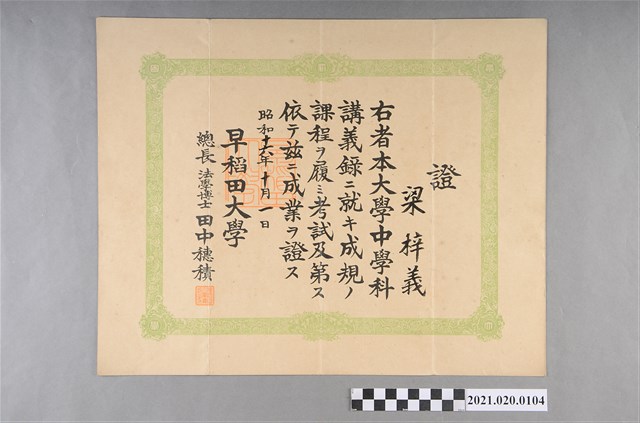 證
梁梓義
右者本大學中學科
講義錄ニ就キ成規ノ
課程ヲ履ミ考試及第ス
依テ茲ニ成業ヲ證ス
昭和十六年十月一日
早稻田大學
總長 法學博士 田中穗積
2021.020.0104